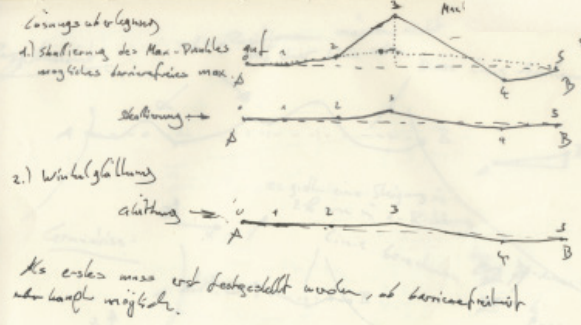 Lösungsüberlegung
3 Max!
1.) Skallierung des Max-Punktes auf 0 1 2 5
mögliches barrierefreies max. A 4 B
Skallierung → 0 1 2 3 4 5
A B
2.) Winkelglättung
Glättung → 0 1 2 3 4 5
A B
Als erstes muss erst festgestellt werden, ob barrierefreiheit
möglich.